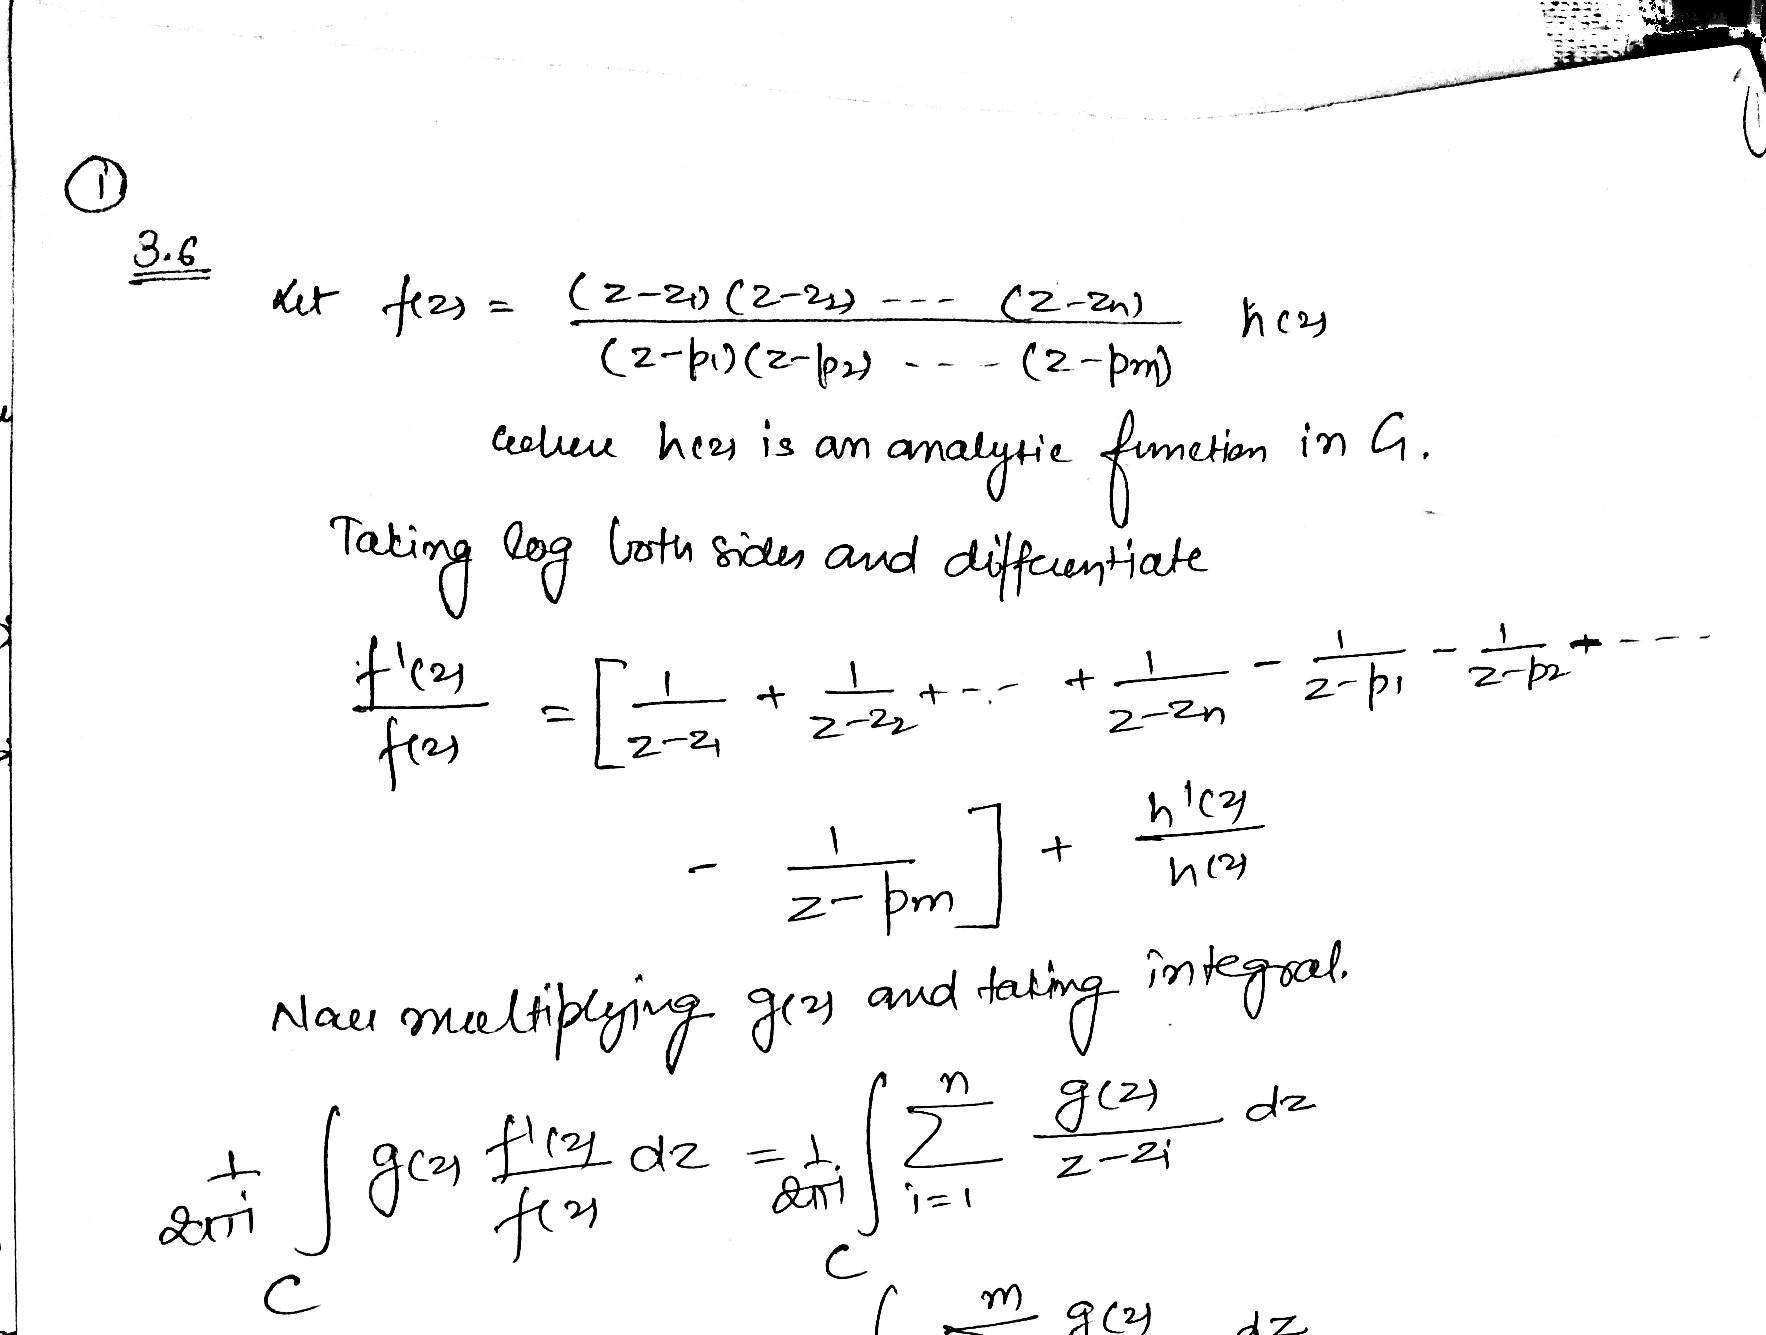 ①
3.6
Let f(z) = (z-z1)(z-z2) --- (z-zn) / (z-p1)(z-p2) ---- (z-pm) h(z)
where h(z) is an analytic function in G.
Taking log both sides and differentiate
f'(z)/f(z) = [ 1/(z-z1) + 1/(z-z2) + --- + 1/(z-zn) - 1/(z-p1) - 1/(z-p2) + ----
- 1/(z-pm) ] + h'(z)/h(z)
Now multiplying g(z) and taking integral.
1/2πi ∫C g(z) f'(z)/f(z) dz = 1/2πi ∫C Σ i=1 n g(z)/(z-zi) dz
m g(z) dz